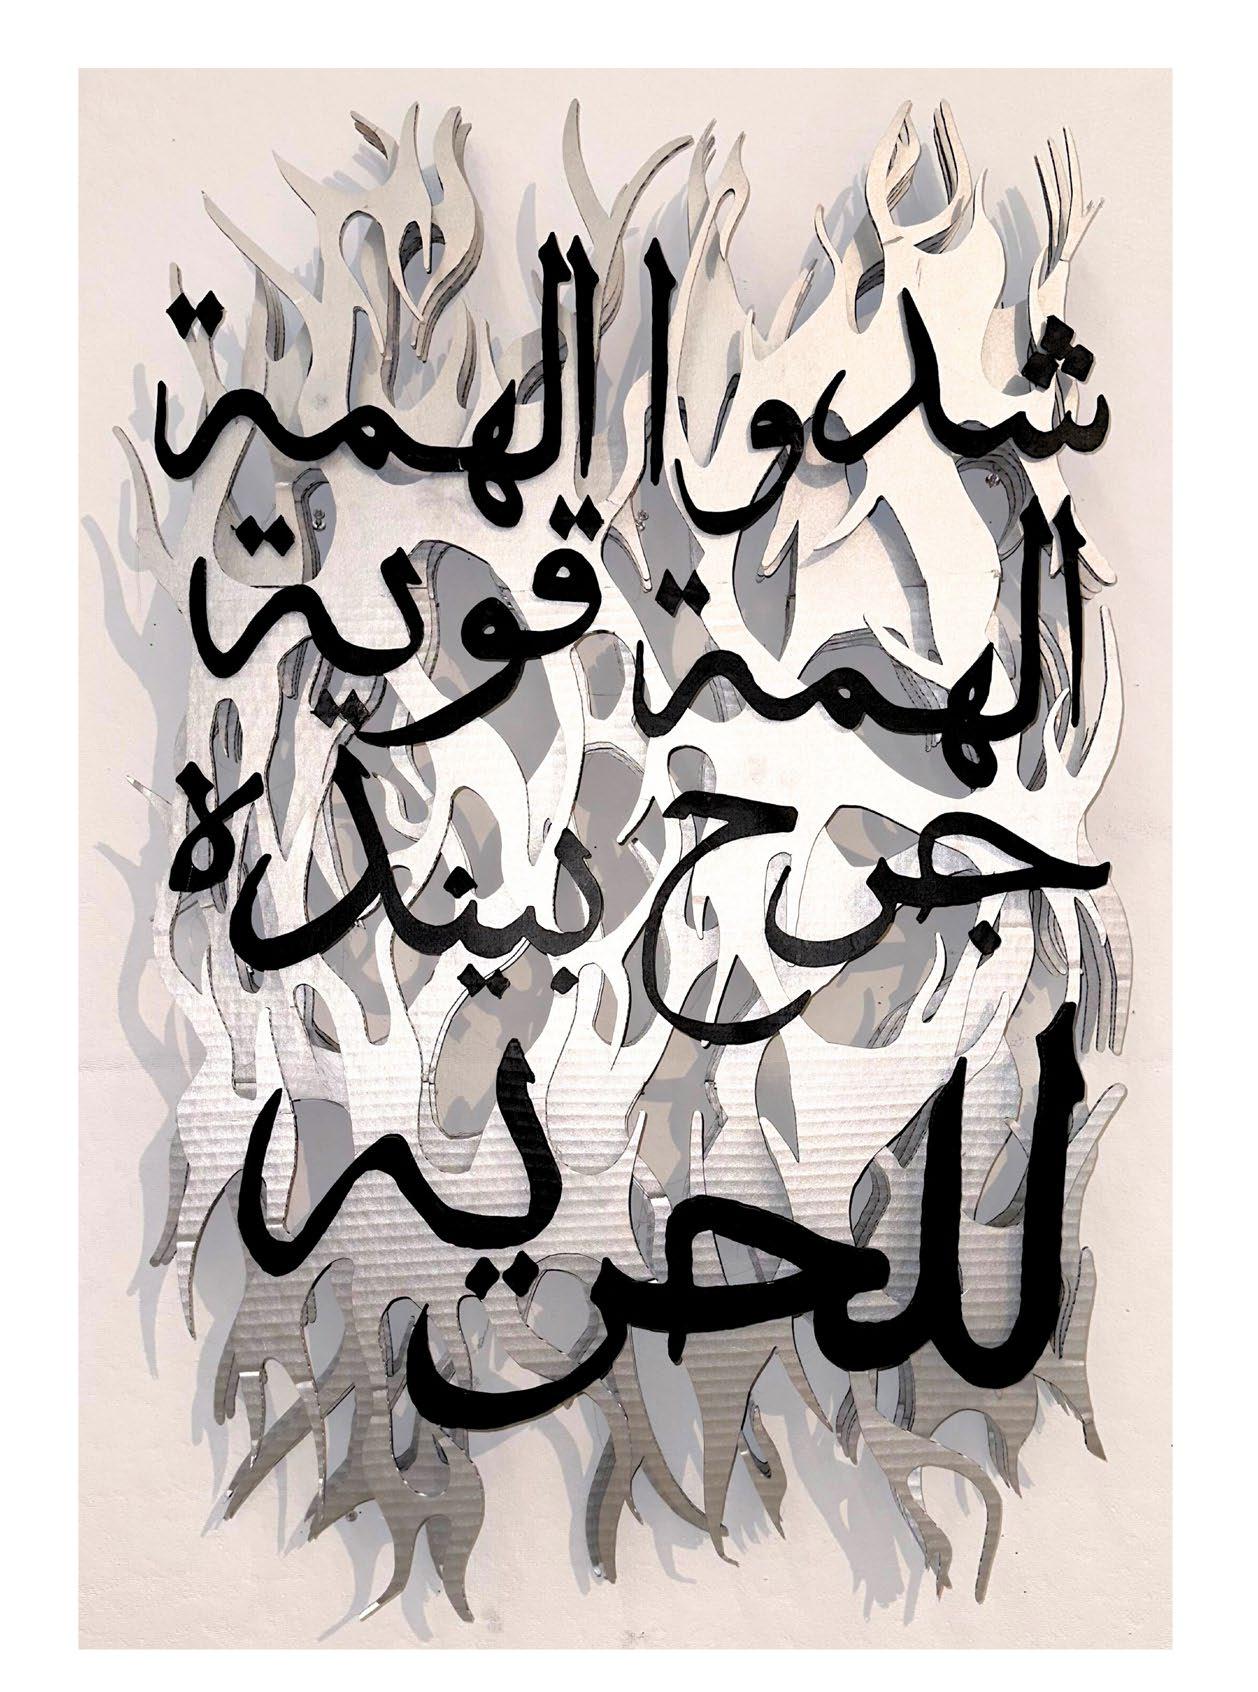 شدوا الهمة
الهمة قوية
جرح بينده
للحريه